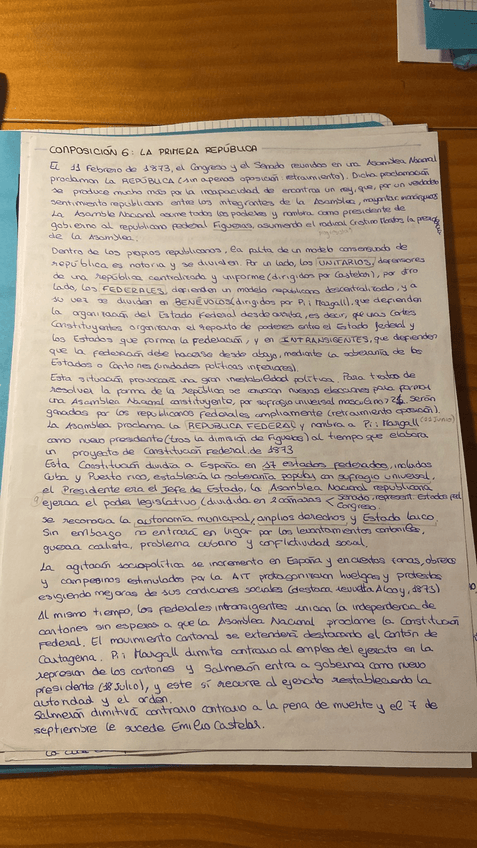 COMPOSICIÓN 6: LA PRIMERA REPÚBLICA
El 11 Febrero de 1873, el Congreso y el Senado reunidos en una Asamblea Nacional
proclaman la REPÚBLICA (sin apenas oposición retraimiento). Dicha proclamación
se produce mucho más por la incapacidad de encontrar un rey, que, por un verdadero
sentimiento republicano entre los integrantes de la Asamblea, mayoritar. monárquicos
La Asamblea Nacional asume todos los poderes y nombra como presidente de
gobierno al republicano federal Figueras, asumiendo el radical Cristino Martos la presid.
de la Asamblea.
Dentro de los propios republicanos, la falta de un modelo consensuado de
república es notoria y se dividen. Por un lado, los UNITARIOS, defensores
de una república centralizada y uniforme (dirigidos por Castelar), por otro
lado, los FEDERALES, defienden un modelo republicano descentralizado, y a
su vez se dividen en BENÉVOLOS (dirigidos por Pi i Margall), que defienden
la organización del Estado Federal desde arriba, es decir, que unas Cortes
Constituyentes organizaran el reparto de poderes entre el Estado federal y
los Estados que forman la federación, y en INTRANSIGENTES, que defienden
que la federación debe hacerse desde abajo, mediante la soberanía de los
Estados o Cantones (unidades políticas inferiores).
Esta situación provocará una gran inestabilidad política. Para tratar de
resolver la forma de la República se convocan nuevas elecciones para formar
una Asamblea Nacional constituyente, por sufragio universal masculino >21, serán
ganadas por los republicanos federales ampliamente (retraimiento oposición).
La Asamblea proclama la REPÚBLICA FEDERAL y nombra a Pi i Margall
como nuevo presidente (tras la dimisión de Figueras) al tiempo que elabora
un proyecto de Constitución Federal de 1873
Esta Constitución dividía a España en 17 estados federados, incluidos
Cuba y Puerto rico, establecía la soberanía popular con sufragio universal,
el Presidente era el Jefe de Estado, la Asamblea Nacional republicana
ejercía el poder legislativo (dividida en 2 cámaras < Senado: represent. Estados fed.
Congreso
se reconocía la autonomía municipal, amplios derechos y Estado laico.
Sin embargo no entrará en vigor por los levantamientos cantonales,
guerra carlista, problema cubano y conflictividad social.
La agitación sociopolítica se incrementó en España y en ciertas zonas, obreros
y campesinos estimulados por la AIT protagonizaron huelgas y protestas
exigiendo mejoras de sus condiciones sociales (destaca revuelta Alcoy, 1873)
Al mismo tiempo, los federales intransigentes inician la independencia de
cantones sin esperar a que la Asamblea Nacional proclame la Constitución
Federal. El movimiento Cantonal se extenderá destacando el Cantón de
Cartagena. Pi i Margall dimite contrario al empleo del ejército en la
represión de los cantones y Salmerón entra a gobernar como nuevo
presidente (18 Julio), y este sí recurre al ejército restableciendo la
autoridad y el orden.
Salmerón dimitirá contrario contrario a la pena de muerte y el 7 de
septiembre le sucede Emilio Castelar.